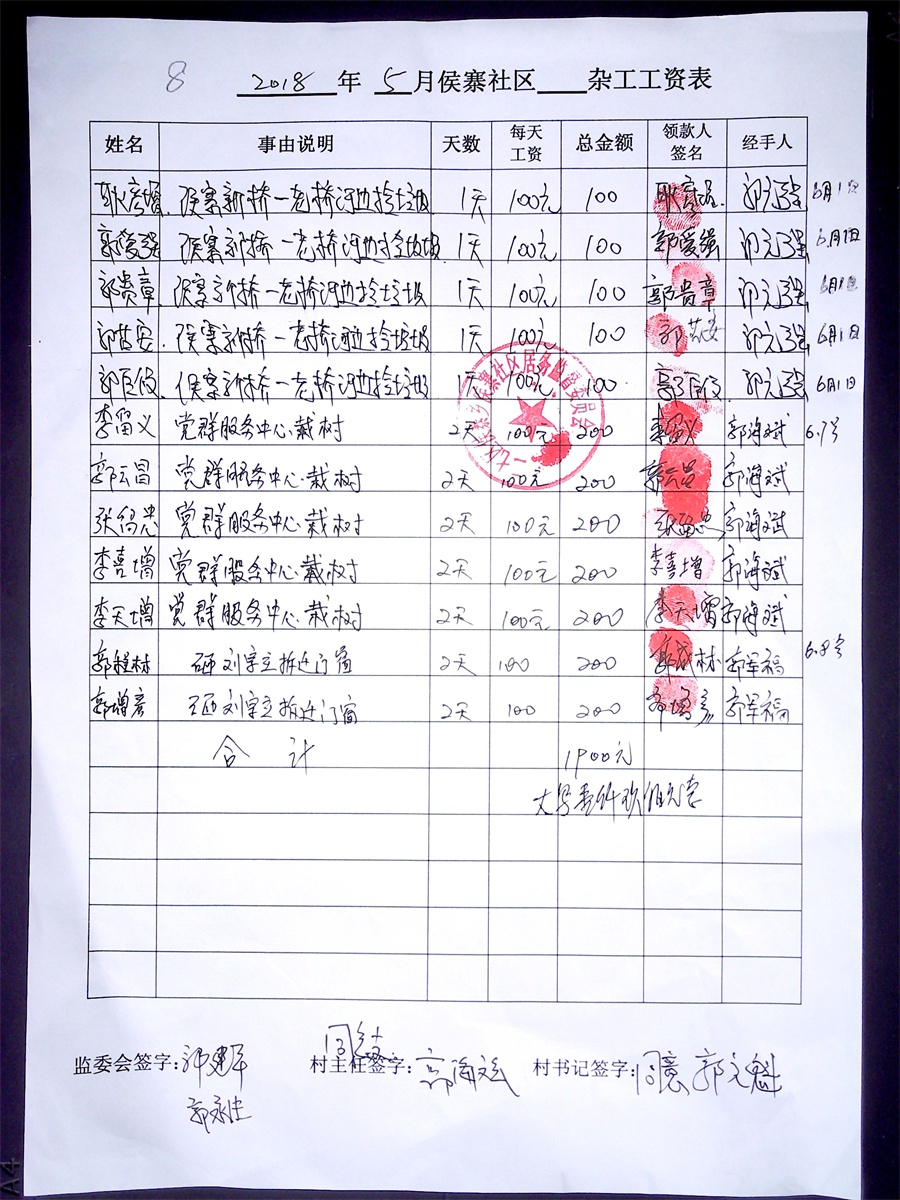 8
2018 年 5 月侯寨社区 杂工工资表
姓名 事由说明 天数 每天工资 总金额 领款人签名 经手人
侯寨新桥一老桥河边捡垃圾 1天 100元 100 郭元强 6月1日
郭爱强 侯寨新桥一老桥河边捡垃圾 1天 100元 100 郭爱强 郭元强 6月1日
郭贵章 侯寨新桥一老桥河边捡垃圾 1天 100元 100 郭贵章 郭元强 6月1日
侯寨新桥一老桥河边捡垃圾 1天 100元 100 郭元强 6月1日
侯寨新桥一老桥河边捡垃圾 1天 100元 100 郭元强 6月1日
李留义 党群服务中心.栽树 2天 100元 200 李留义 郭海斌 6.7号
郭云昌 党群服务中心.栽树 2天 100元 200 郭云昌 郭海斌
党群服务中心.栽树 2天 100元 200 郭海斌
李喜增 党群服务中心.栽树 2天 100元 200 李喜增 郭海斌
李天增 党群服务中心.栽树 2天 100元 200 李天增 郭海斌
拆迁门窗 2天 100 200 郭军福 6.8号
拆迁门窗 2天 100 200 郭军福
合计 1900元
监委会签字: 村主任签字: 郭海斌 村书记签字: 同意 郭文魁
郭永忠